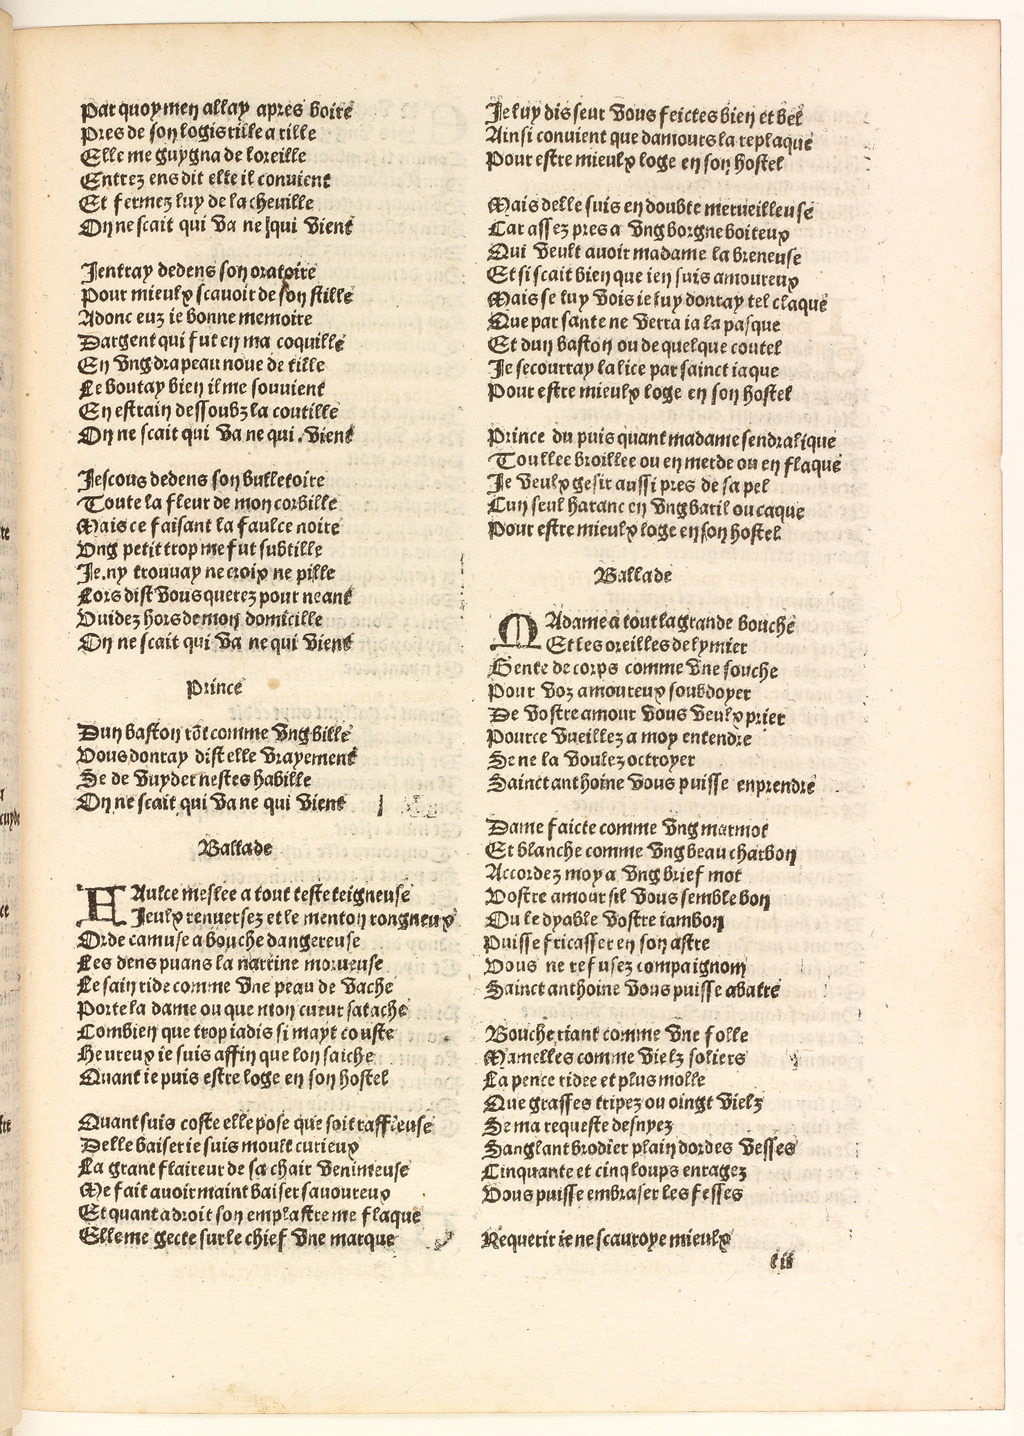 Par quoy men allay apres boire
Pres de son logis tille a tille
Elle me guygna de loreille
Entrez ens dit elle il convient
Et fermez luy de la cheville
On ne scait qui va ne qui vient
Jentray dedens son oratoire
Pour mieulx scavoir de son stille
Adonc euz ie bonne memoire
Dargent qui fut en ma coquille
En vng drapeau noue de tille
Le boutay bien il me souvient
En estrain dessoubz la coutille
On ne scait qui va ne qui . vient
Jescous dedens son bulletoire
Toute la fleur de mon corbille
Mais ce faisant la faulce noire
Vng petit trop me fut subtille
Je.ny trouvay ne croix ne pille
Lors dist vous querez pour neant
Vuidez hors de mon domicille
On ne scait qui va ne qui vient
Prince
Dun baston rōt comme vng bille
Vous donray dist elle vrayement
Se de vuyder nestes habille
On ne scait qui va ne qui vient
Ballade
HAulce meslee a tout teste teigneuse
Jeulx renversez et le menton rongneux
Orde camuse a bouche dangereuse
Les dens puans la narrine morveuse
Le sain ride comme vne peau de vache
Porte la dame ou que mon cueur satache
Combien que trop iadis si mayt couste
Heureux ie suis affin que lon saiche
Quant ie puis estre loge en son hostel
Quant suis coste elle pose que soit raffleuse
Delle baiser ie suis moult curieux
La grant flaireur de sa chair venimeuse
Me fait avoir maint baiser savoureux
Et quant adroit son emplastre me flaque
Elle me gecte sur le chief vne marque
Je luy dis seur vous feictes bien et bel
Ainsi convient que damours la replaque
Pour estre mieulx loge en son hostel
Mais delle suis en doubte merveilleuse
Car assez pres a vng borgne boiteux
Qui veult avoir madame la breneuse
Et si scait bien que ien suis amoureux
Mais se luy vois ie luy donray tel claque
Que par sante ne verra ia la pasque
Et dun baston ou de quelque coutel
Je secourray la lice par sainct iaque
Pour estre mieulx loge en son hostel
Prince du puis quant madame sendralique
Toullee broillee ou en merde ou en flaque
Je veulx gesir aussi pres de sa pel
Cun seul haranc en vng baril ou caque
Pour estre mieulx loge en son hostel
Ballade
MAdame a tout la grande bouche
Et les oreilles de lymier
Gente de corps comme vne souche
Pour voz amoureux souldoyer
De vostre amour vous veulx prier
Pource vueillez a moy entendre
Se ne la voulez octroyer
Sainct anthoine vous puisse enprendre
Dame faicte comme vng marmot
Et blanche comme vng beau charbon
Accordez moy a vng brief mot
Vostre amour sil vous semble bon
Ou le dyable vostre iambon
Puisse fricasser en son astre
Vous ne refusez compaignom
Sainct anthoine vous puisse abatre
Bouche riant comme vne folle
Mamelles comme vielz soliers
La pence ridee et plus molle
Que grasses tripez ou oingt vielz
Se ma requeste desnyez
Sanglant brodier plain dordes vesses
Cinquante et cinq loups enragez
Vous puisse embraser les fesses
Requerir ie ne scauroye mieulx